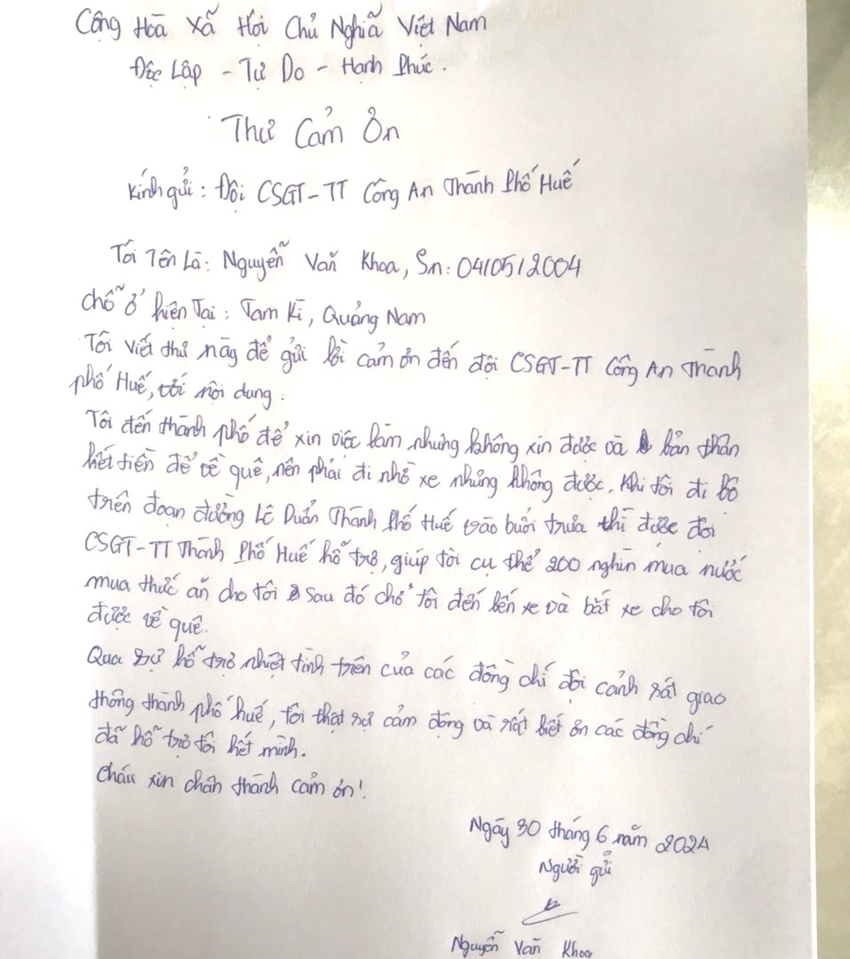 Cộng Hoà Xã Hội Chủ Nghĩa Việt Nam
Độc Lập - Tự Do - Hạnh Phúc.
Thư Cảm Ơn
Kính gửi: Đội CSGT-TT Công An Thành Phố Huế
Tôi Tên Là: Nguyễn Văn Khoa, Sn: 04/05/2004
Chỗ ở hiện Tại: Tam Kì, Quảng Nam
Tôi viết thư này để gửi lời cảm ơn đến đội CSGT-TT Công An Thành
phố Huế, với nội dung:
Tôi đến thành phố để xin việc làm nhưng không xin được và bản thân
hết tiền để về quê, nên phải đi nhờ xe nhưng không được. Khi tôi đi bộ
trên đoạn đường Lê Duẩn Thành Phố Huế vào buổi trưa thì được đội
CSGT-TT Thành Phố Huế hỗ trợ, giúp tôi cụ thể 200 nghìn mua nước
mua thức ăn cho tôi sau đó chở tôi đến bến xe và bắt xe cho tôi
được về quê.
Qua sự hỗ trợ nhiệt tình trên của các đồng chí đội cảnh sát giao
thông thành phố huế, tôi thật sự cảm động và rất biết ơn các đồng chí
đã hỗ trợ tôi hết mình.
Cháu xin chân thành cảm ơn!
Ngày 30 tháng 6 năm 2024
Người gửi
Nguyễn Văn Khoa